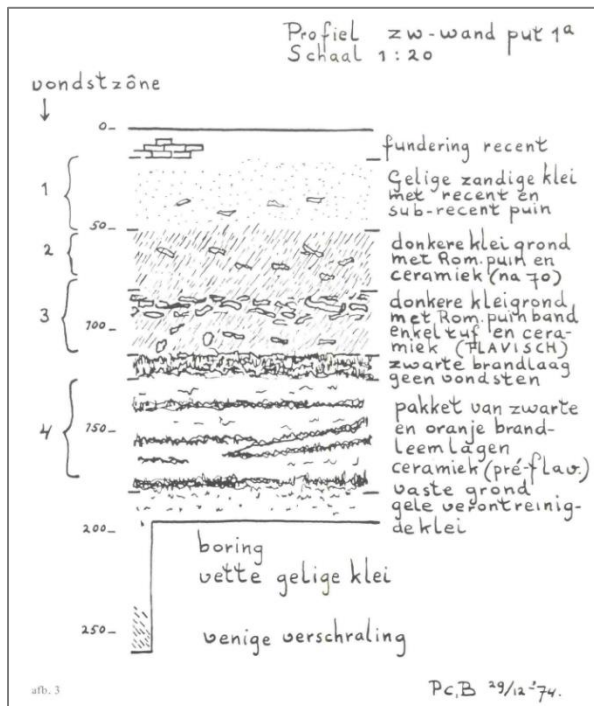 Profiel zw-wand put 1a
Schaal 1:20
vondstzône
↓
0
fundering recent
1
Gelige zandige klei
met recent en
sub-recent puin
50
2
donkere klei grond
met Rom. puin en
ceramiek (na 70)
3
100
donkere kleigrond
met Rom. puinband
enkel tuf en cera-
miek (FLAVISCH)
zwarte brandlaag
geen vondsten
4
150
pakket van zwarte
en oranje brand-
leemlagen
ceramiek (pré-flav.)
vaste grond
gele verontreinig-
de klei
200
boring
vette gelige klei
250
venige verschraling
afb. 3
PC,B 29/12-'74.